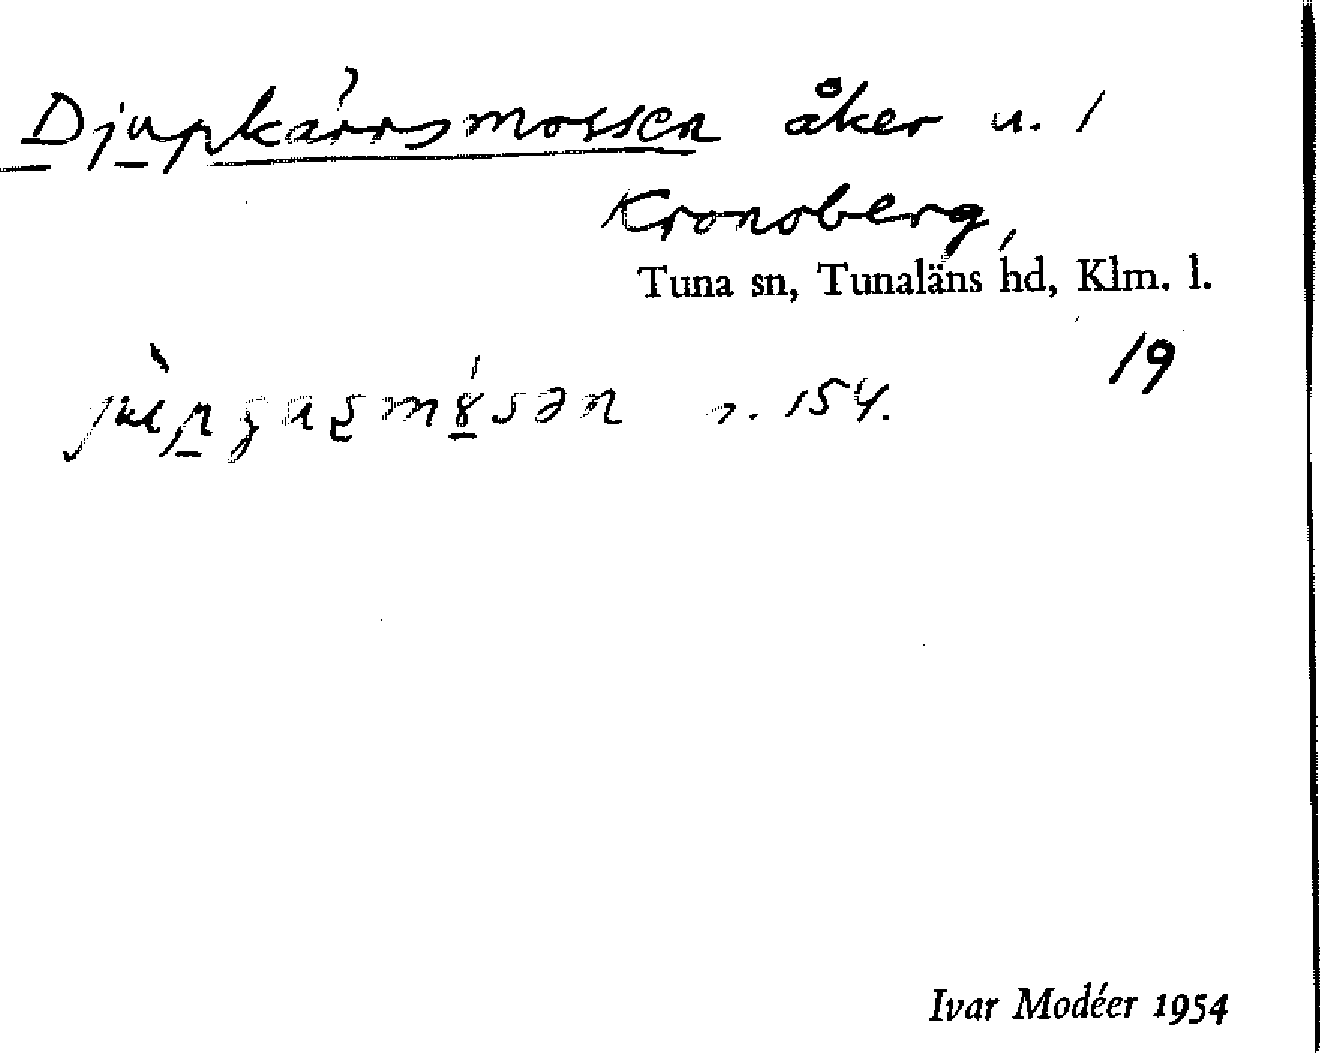 Djupkärrsmossen åker u. 1
Kronoberg,
Tuna sn, Tunaläns hd, Klm. l.
19
154.
Ivar Modéer 1954